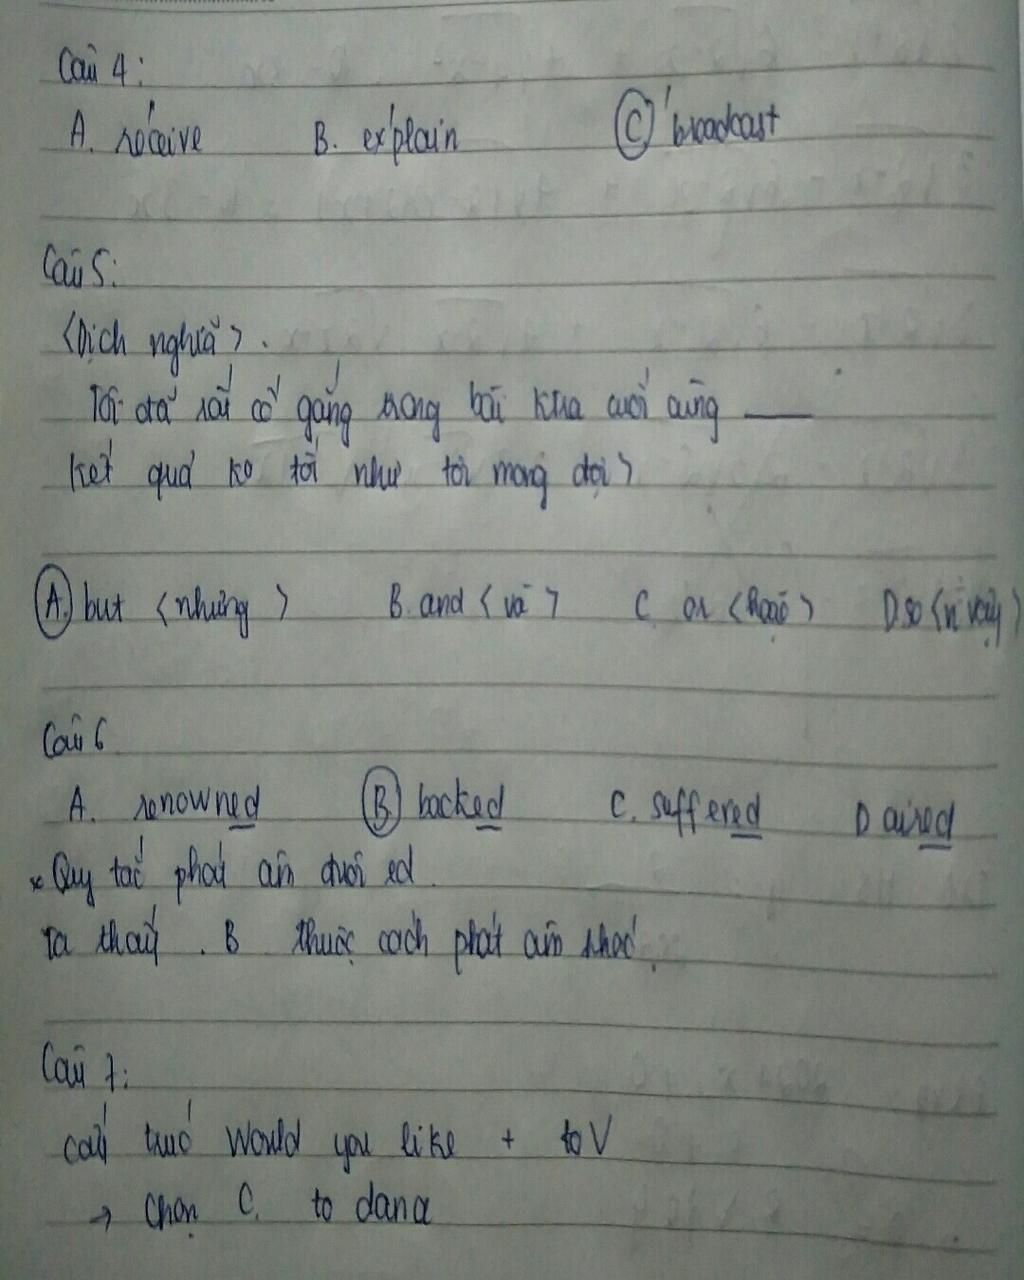 Câu 4:
A. re'ceive B. ex'plain C 'broadcast
Câu 5:
<Dịch nghĩa>.
Tôi đã rất cố gắng trong bài ktra cuối cùng ___
kết quả ko tốt như tôi mong đợi>
A. but <nhưng> B. and <và> C. or <hoặc> D so <vì vậy>
Câu 6
A. renowned B. backed C. suffered D aired
* Quy tắc phát âm đuôi ed.
Ta thấy. B thuộc cách phát âm khác.
Câu 7:
cấu trúc Would you like + to V
→ Chọn C. to dance